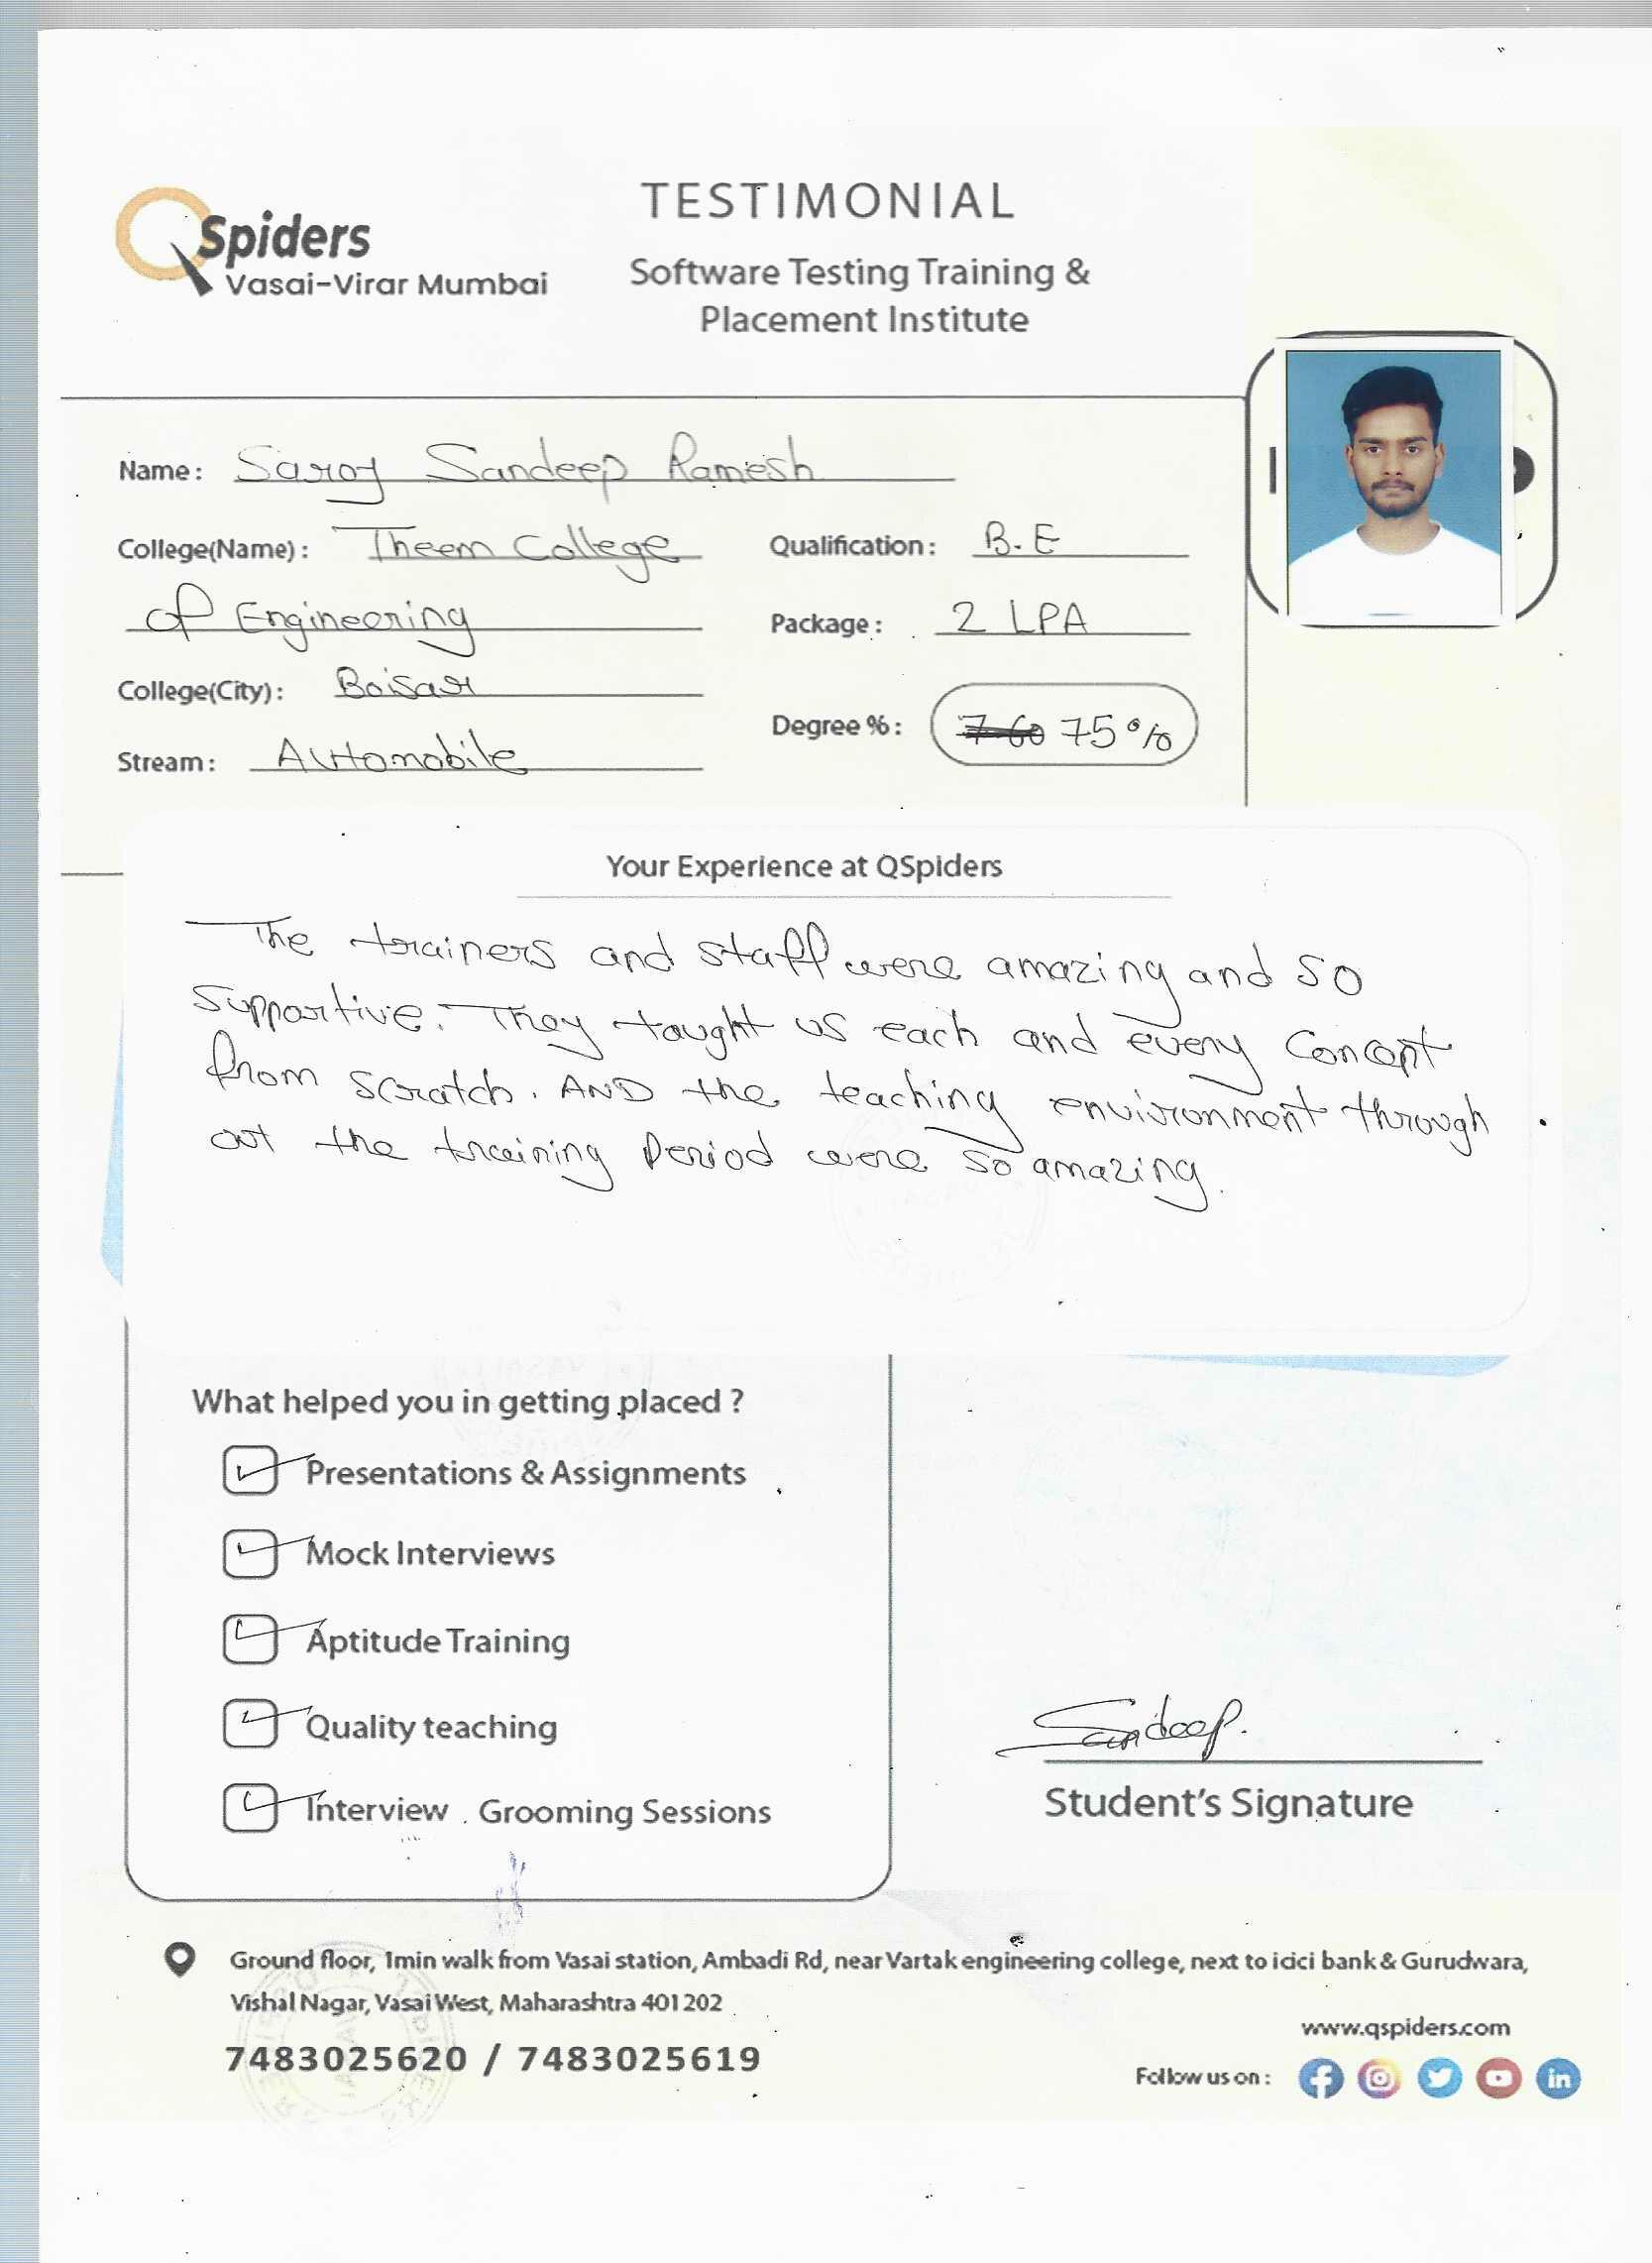 TESTIMONIAL
QSpiders
Vasai-Virar Mumbai
Software Testing Training &
Placement Institute
Name: Saroj Sandeep Ramesh
College(Name): Theem College
of Engineering
Qualification: B.E
Package: 2 LPA
College(City): Boisar
Degree %: 7.60 75%
Stream: Automobile
Your Experience at QSpiders
The trainers and staff were amazing and so
supportive. They taught us each and every concept
from scratch. AND the teaching environment through
out the training period were so amazing.
What helped you in getting placed ?
Presentations & Assignments
Mock Interviews
Aptitude Training
Quality teaching
Interview Grooming Sessions
Sandeep.
Student's Signature
Ground floor, 1min walk from Vasai station, Ambadi Rd, near Vartak engineering college, next to icici bank & Gurudwara,
Vishal Nagar, Vasai West, Maharashtra 401202
7483025620 / 7483025619
www.qspiders.com
Follow us on :